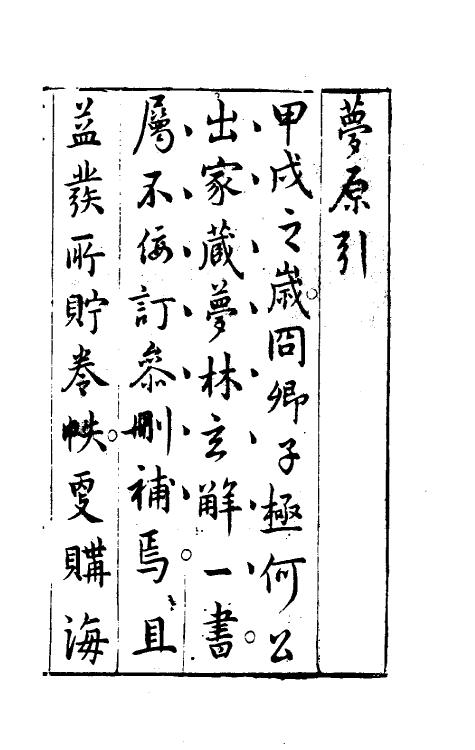 夢原引
甲戌之歲。冏卿子極何公
出家藏夢林玄解一書。
屬不佞訂叅刪補焉。且
益發所貯卷帙。更購海